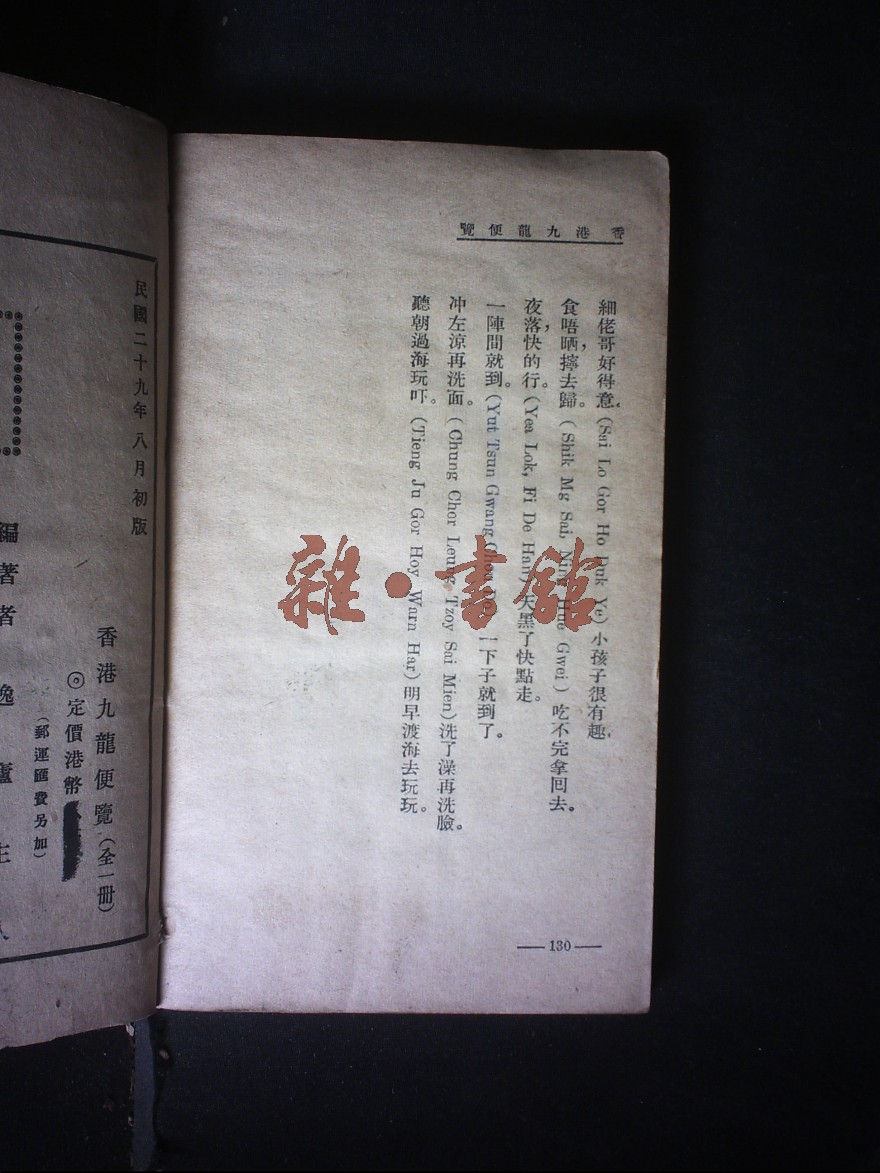 香港九龍便覽
細佬哥好得意。(Sai Lo Gor Ho Duk Ye) 小孩子很有趣。
食唔晒,擰去歸。(Shik Mg Sai, Ning Hue Gwei) 吃不完拿回去。
夜落,快的行。(Yea Lok, Fi De Han) 天黑了快點走。
一陣間就到。(Yut Tsun Gwang 一下子就到了。
冲左涼再洗面。(Chung Chor Leung Tzoy Sai Mien) 洗了澡再洗臉。
聽朝過海玩吓。(Tieng Ju Gor Hoy Warn Har) 明早渡海去玩玩。
—130—
雜·書館
民國二十九年八月初版
香港九龍便覽(全一冊)
◎定價港幣
(郵運匯費另加)
編著者 逸廬主人